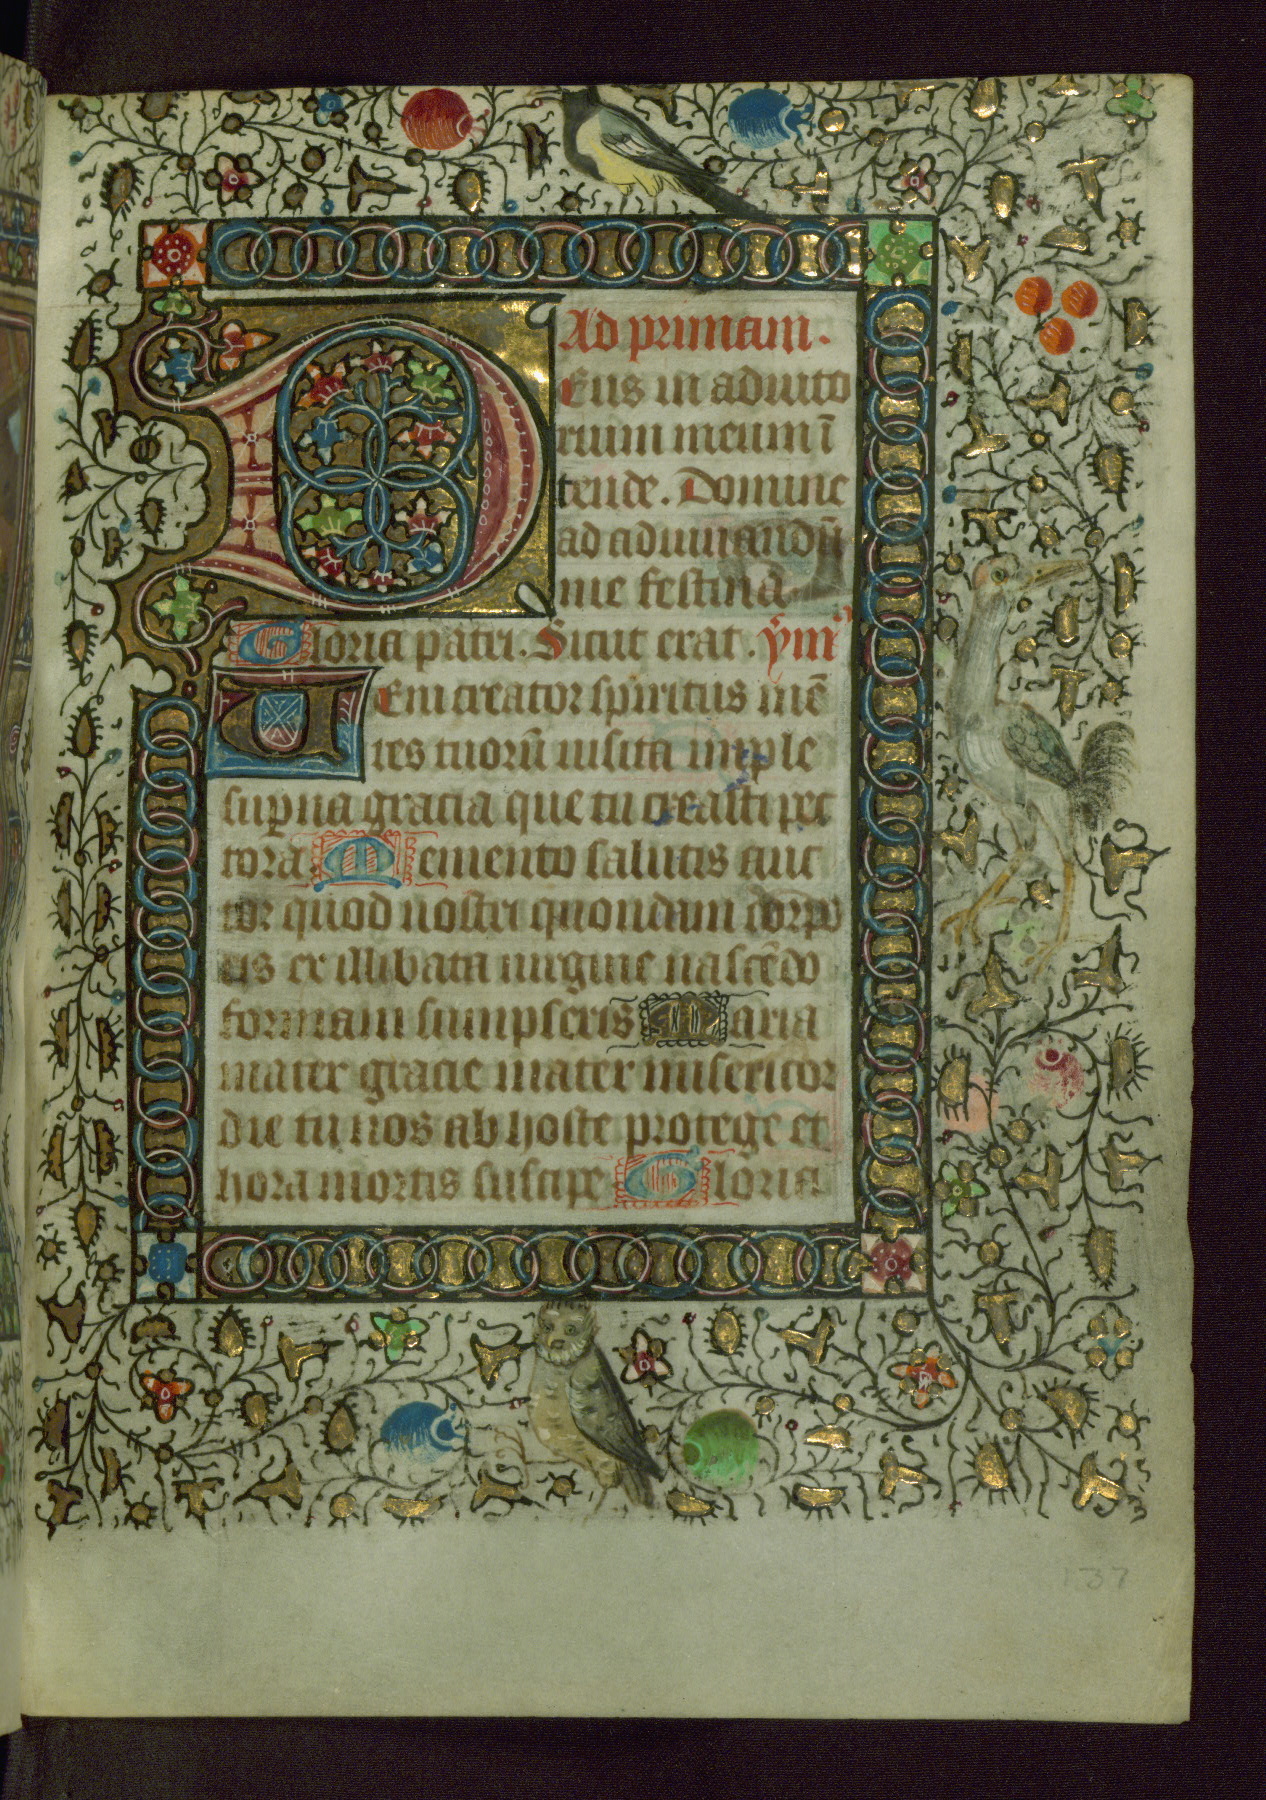 Ad primam.
Deus in adiuto
rium meum ī
tende. Domine
ad adiuuandū
me festina
Gloria patri. Sicut erat. ym̄
Ueni creator spiritus mē
tes tuorū uisita imple
sup̱na gracia que tu creasti pec
tora Memento salutis auc
tor quod nostri quondam corpo
ris ex illibata uirgine nascēdo
formam sumpseris Maria
mater gracie mater misericor
die tu nos ab hoste protege et
hora mortis suscipe Gloria
137